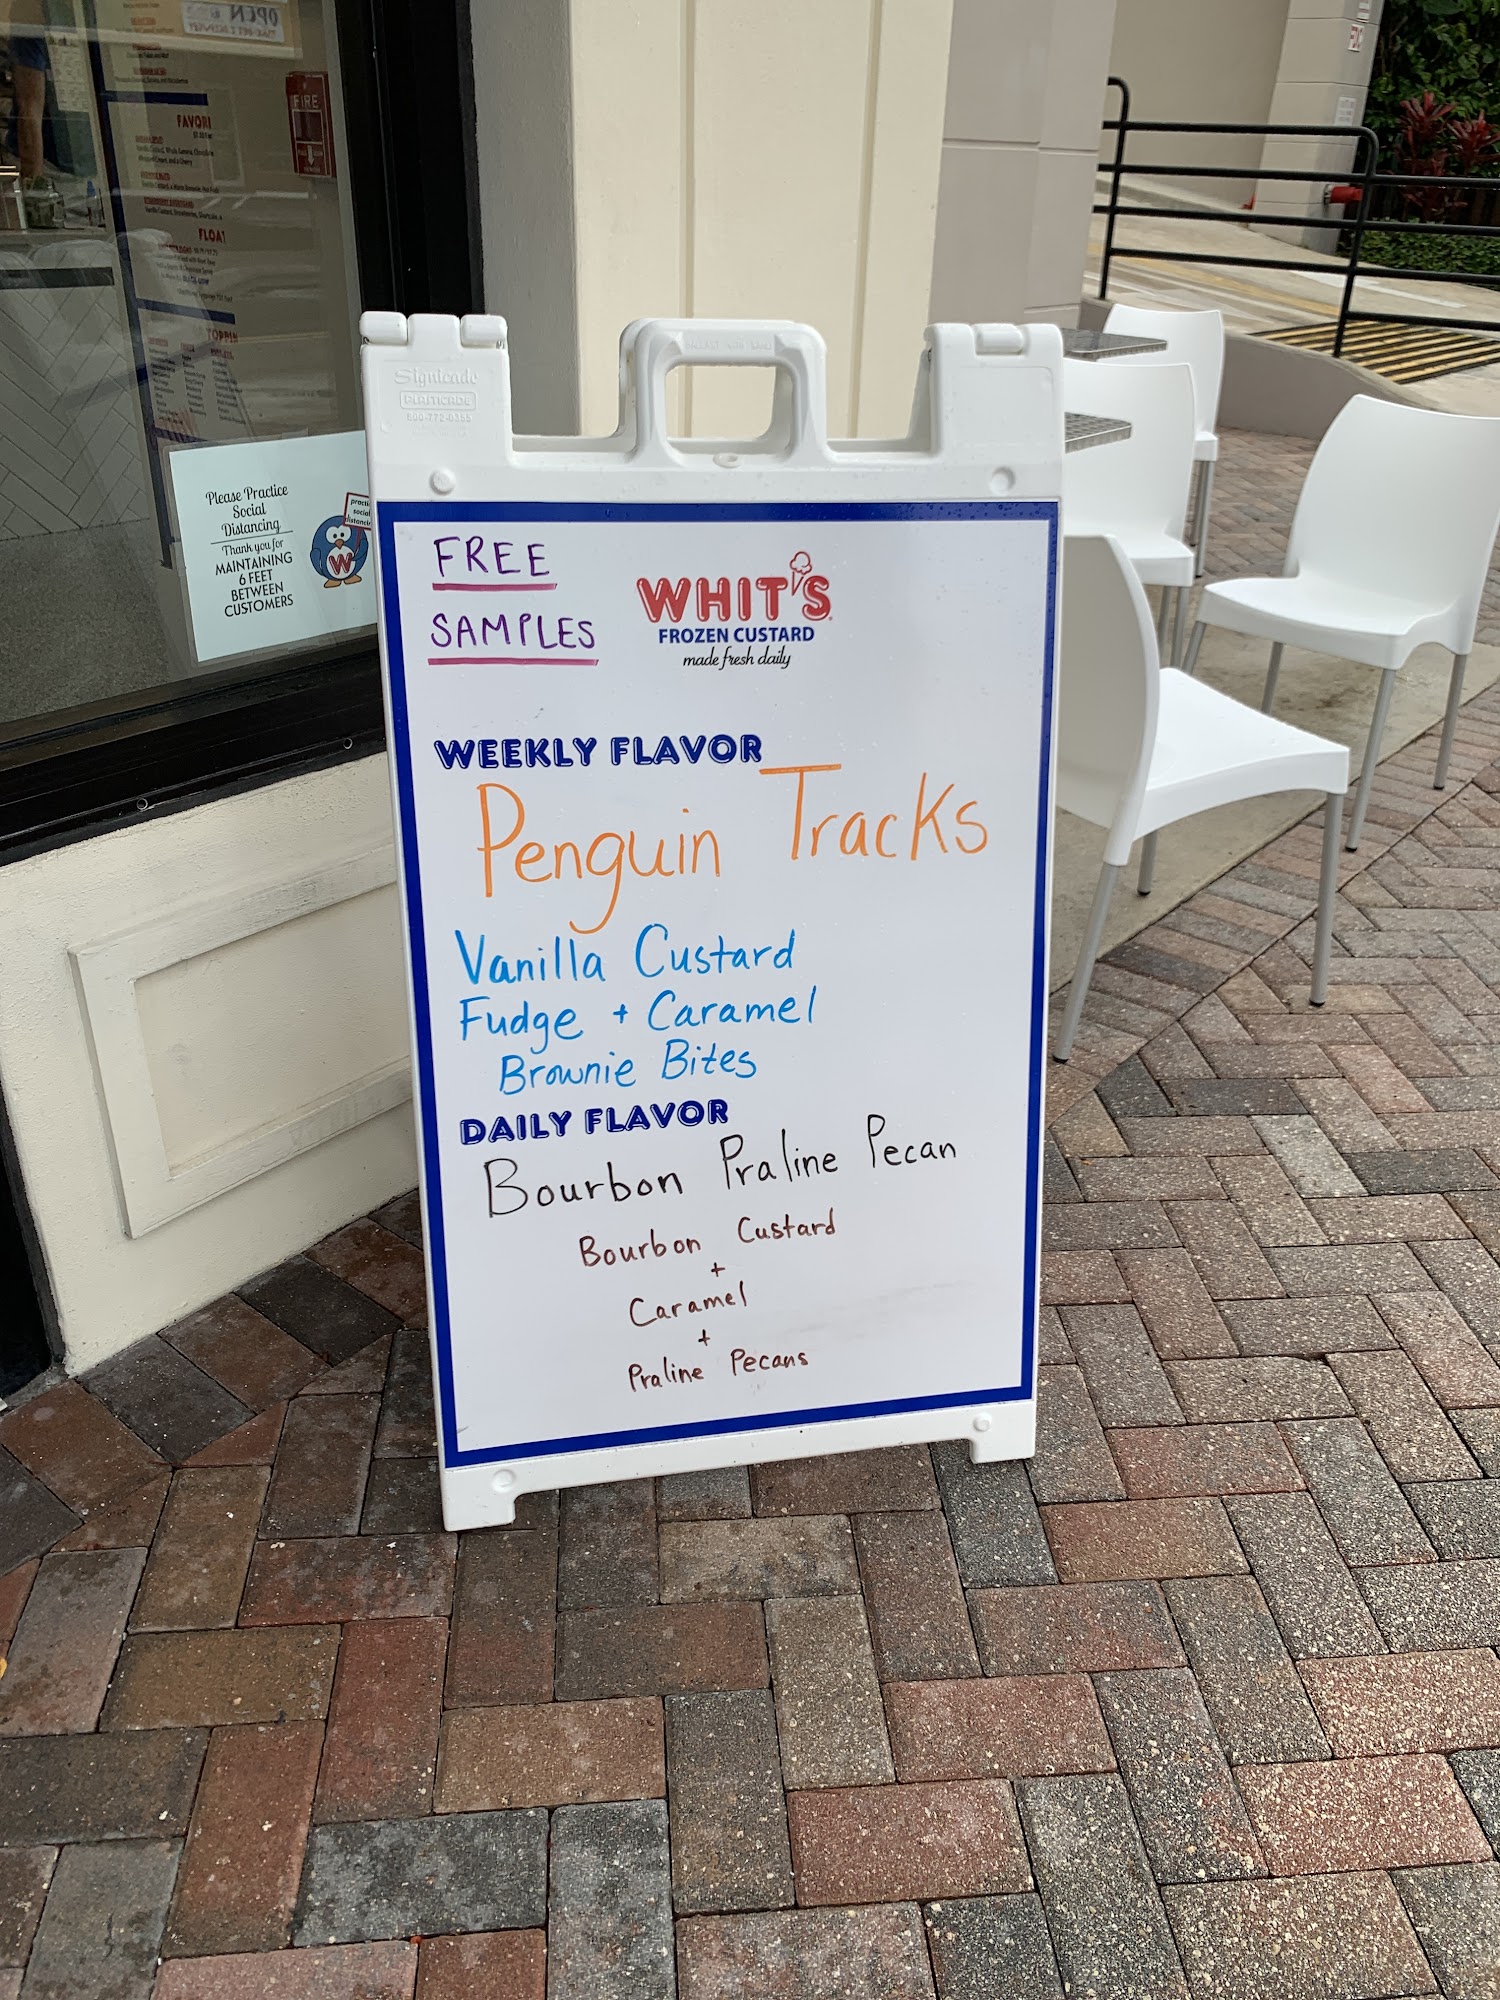 FREE
SAMPLES
WHIT'S
FROZEN CUSTARD
made fresh daily
WEEKLY FLAVOR
Penguin Tracks
Vanilla Custard
Fudge + Caramel
Brownie Bites
DAILY FLAVOR
Bourbon Praline Pecan
Bourbon Custard
+
Caramel
+
Praline Pecans
Signicade
PLASTICADE
800-772-0355
Please Practice
Social
Distancing
Thank you for
MAINTAINING
6 FEET
BETWEEN
CUSTOMERS
W
FIRE
OPEN
FAVORI
FLOAT
TOPPIN